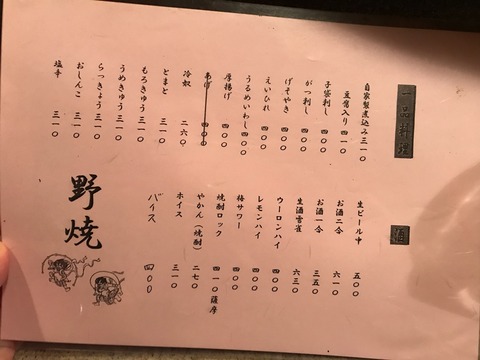 一品料理
自家製煮込み 三一〇
豆腐入り 四一〇
子袋刺し 四〇〇
がつ刺し 四〇〇
げそやき 四〇〇
えいひれ 四〇〇
うるめいわし 四〇〇
厚揚げ 四〇〇
冷奴 二六〇
とまと 三一〇
もろきゅう 三一〇
うめきゅう 三一〇
らっきょう 三一〇
おしんこ 三一〇
塩辛 三一〇
酒
生ビール中 五〇〇
お酒二合 六一〇
お酒一合 三五〇
生酒雪雀 六三〇
ウーロンハイ 四〇〇
レモンハイ 四〇〇
梅サワー 四〇〇
焼酎ロック 四一〇 薩摩
やかん(焼酎) 二七〇
ホイス 三一〇
バイス 四〇〇
野焼